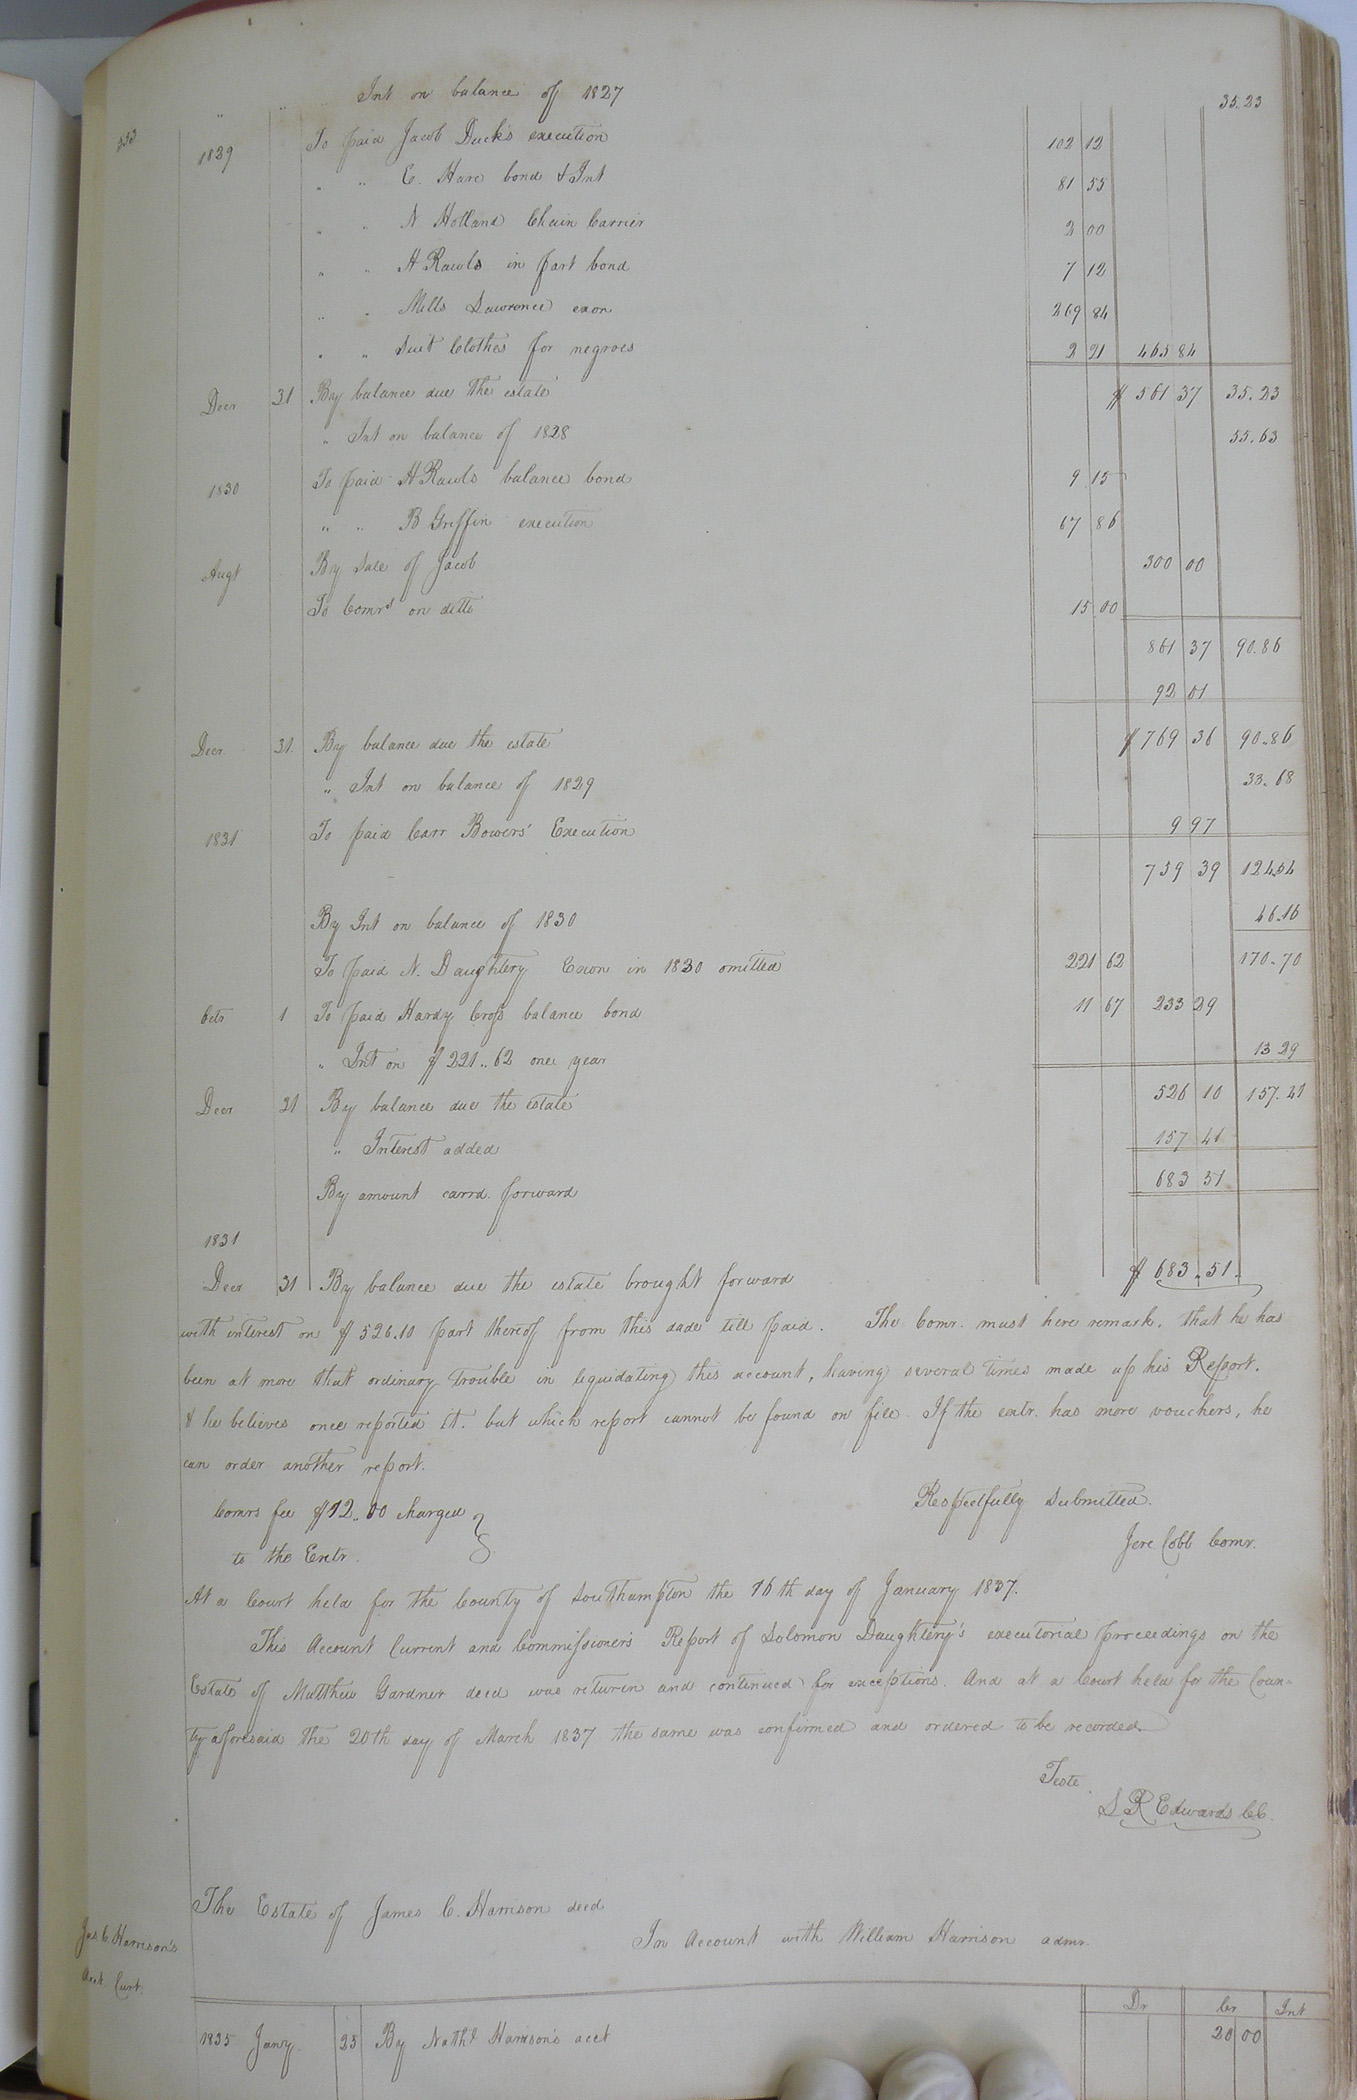 " " Int on balance of 1827 35.23
253
1829 To paid Jacob Duck's execution 102 12
" " E. Hare bond & Int 81 55
" " N Holland Chain Carrier 2 00
" " H Rawls in part bond 7 12
" " Mills Lawrence exon 269 84
" " Suit Clothes for negroes 2 21 465 84
Decr 31 By balance due the estate $ 561 37 35.23
" Int on balance of 1828 55.63
1830 To paid H Rawls balance bond 9 15
" " B Griffin execution 67 86
Augt By Sale of Jacob 300 00
To Comrs on ditto 15 00
861 37 90.86
92 01
Decr 31 By balance due the estate $ 769 36 90.86
" Int on balance of 1829 33.68
1831 To paid Carr Bowers' Execution 9 97
759 39 124.54
By Int on balance of 1830 46.16
To paid N. Daughtery Exon in 1830 omitted 221 62 170.70
Octr 1 To paid Hardy Cross balance bond 11 67 233 29
" Int on $221..62 one year 13 29
Decr 31 By balance due the estate 526 10 157.41
" Interest added 157 41
By amount carrd. forward 683 51
1831
Decr 31 By balance due the estate brought forward $ 683.51.
with interest on $526.10 part thereof from this dade till paid. The Comr. must here remark, that he has
been at more that ordinary trouble in liquidating this account, having several times made up his Report.
& he believes once reported it. but which report cannot be found on file. If the extr. has more vouchers, he
can order another report.
Comrs fee $12..00 charged Respectfully Submitted.
to the Extr. Jere Cobb Comr.
At a Court held for the County of Southampton the 16th day of January 1837.
This Account Current and Commissioners Report of Solomon Daughtery's executorial proceedings on the
Estate of Matthew Gardner decd was return and continued for exceptions. And at a Court held for the Coun-
ty aforesaid the 20th day of March 1837 the same was confirmed and ordered to be recorded.
Teste
S R Edwards CC.
The Estate of James C. Harrison decd
In Account with William Harrison admr.
Jas C. Harrison's
Acct Curt.
Dr Cr Int
1835 Jany. 23 By Nathl Harrison's acct 20 00